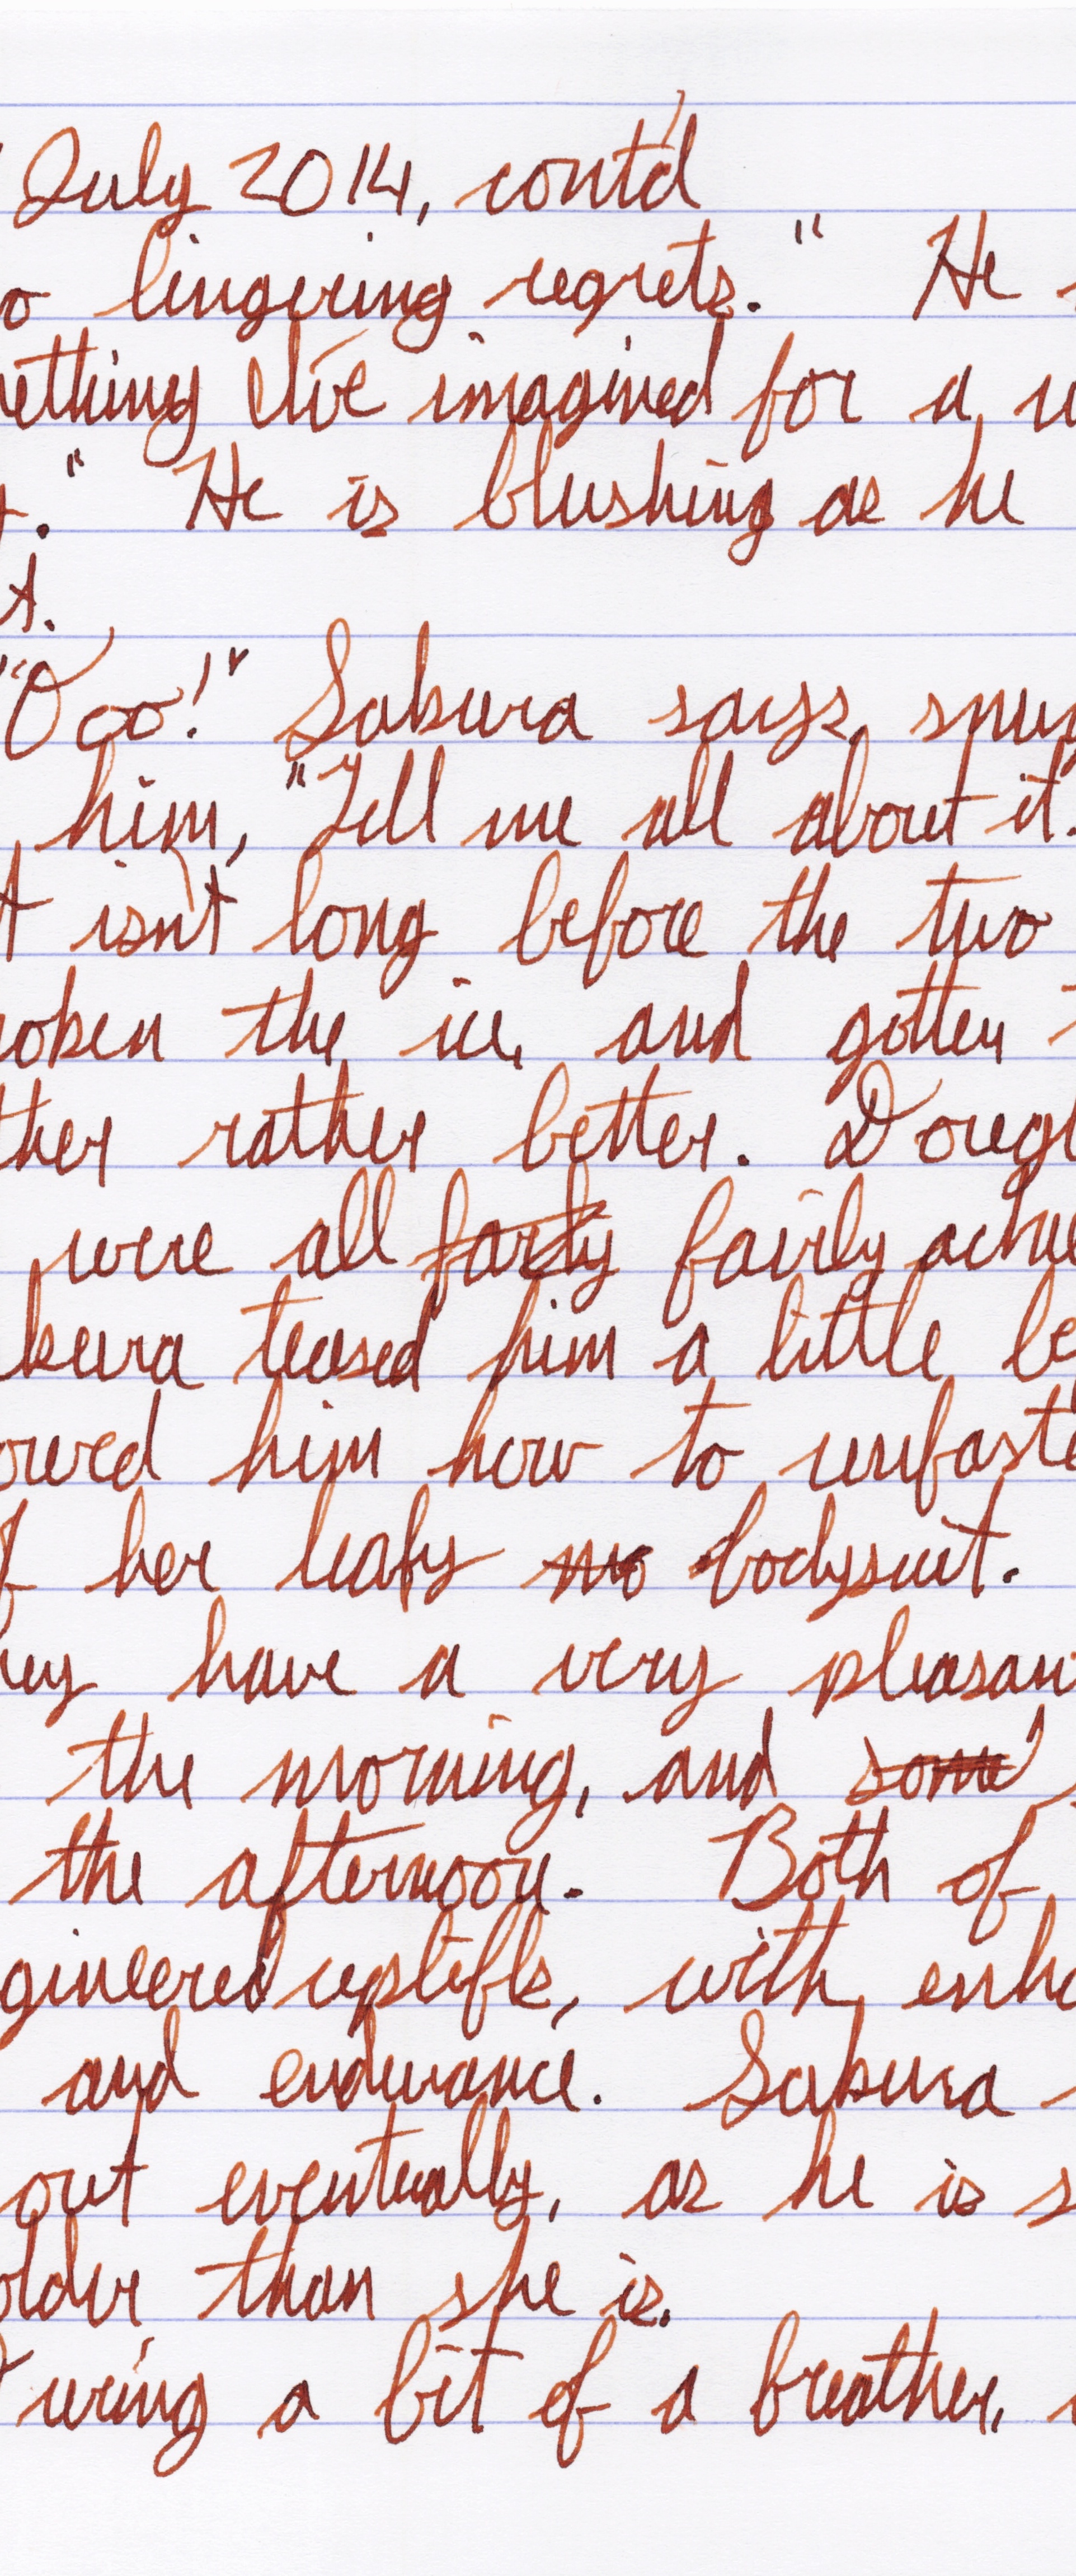 July 2014, cont'd
o lingering regrets." He
ething I've imagined for a
." He is blushing as he
t.
"Ooo!" Sakura says, snug
him, "Tell me all about it.
t isn't long before the two
oken the ice, and gotten
ther rather better. Dougl
were all farly fairly achie
kura teased him a little be
owed him how to unfaste
f her leafy mo bodysuit.
hey have a very pleasan
the morning, and some
the afternoon. Both of
gineered uplifts, with enha
and endurance. Sakura
out eventually, as he is s
older than she is.
During a bit of a breather,